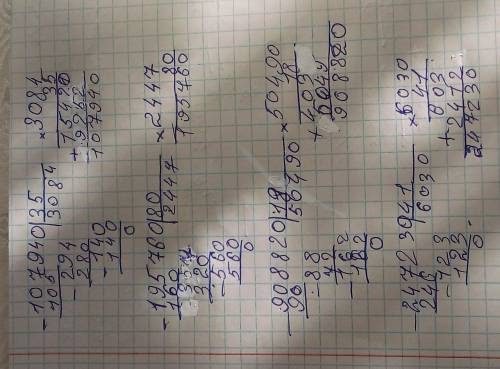 -107940|35
3084
-294
280
-140
140
0
×3084
35
15420
+9252
107940
-195760|80
160
2447
320
-560
560
0
×2447
80
195760
-908820|18
90
50490
-88
162
0
×50490
18
+5049
908820
-247230|41
246
6030
-123
123
0
×6030
41
603
+2412
247230